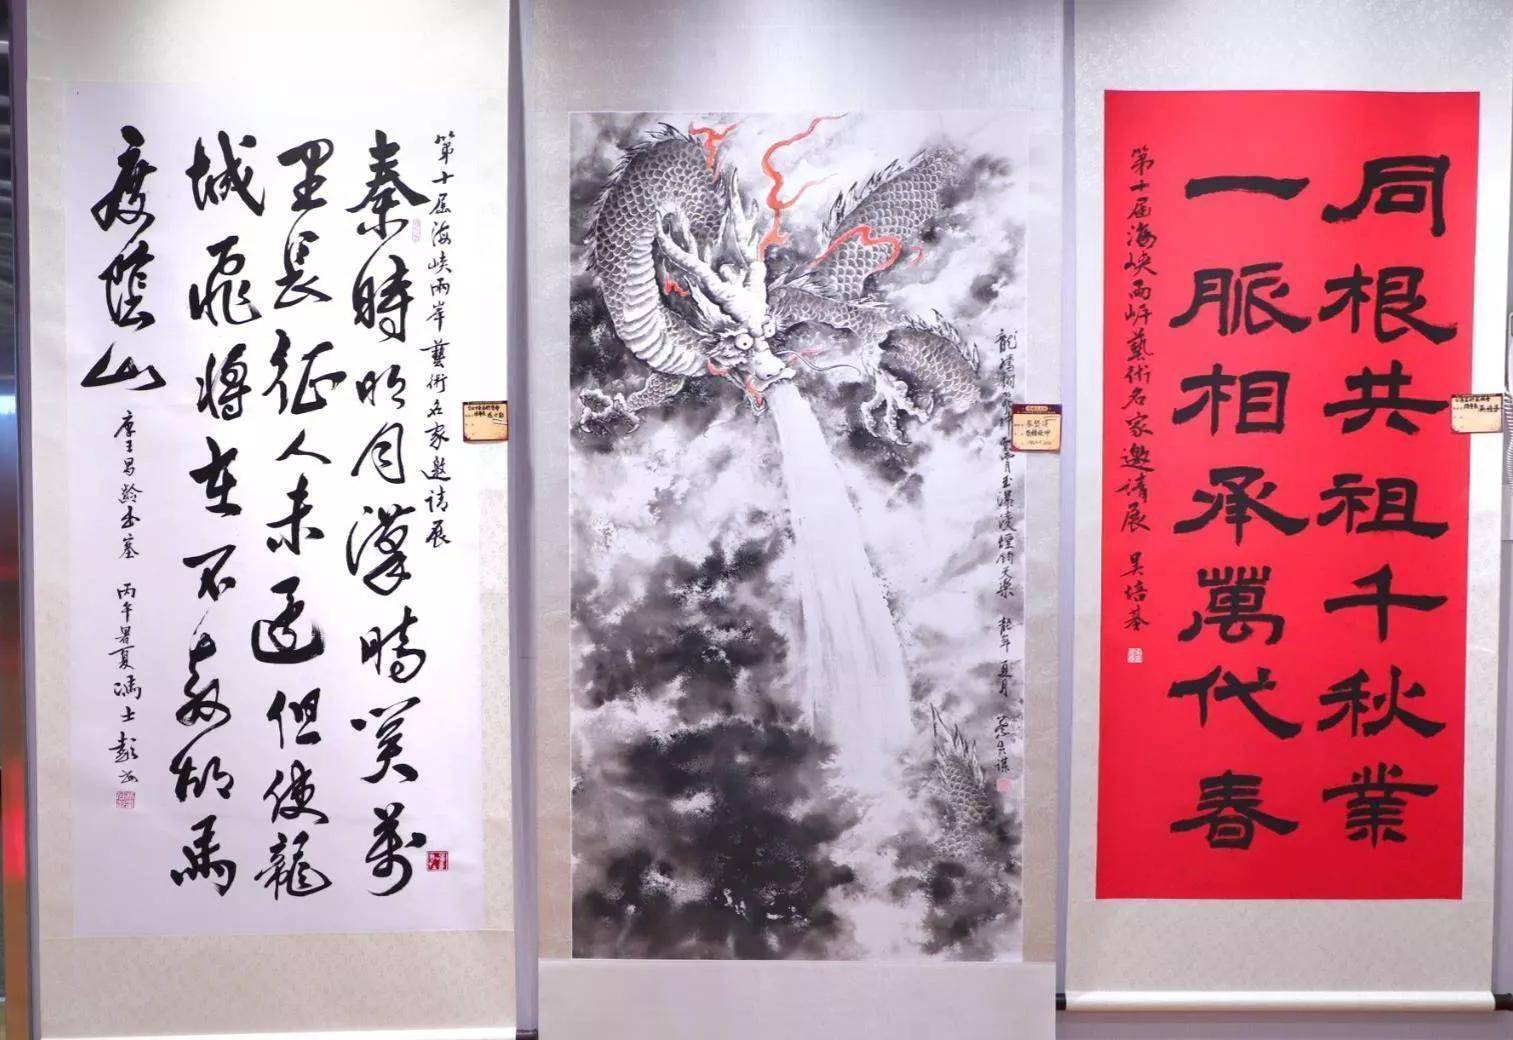 第十屆海峡兩岸藝術名家邀請展
秦時明月漢時關萬
里長征人未還但使龍
城飛將在不教胡馬
度陰山
唐王昌齡出塞 丙午暑夏馮士彭书
玉瀑凌煙鈞天樂 龍年夏月
同根共祖千秋業
一脈相承萬代春
第十屆海峡兩岍藝術名家邀请展 吴培基